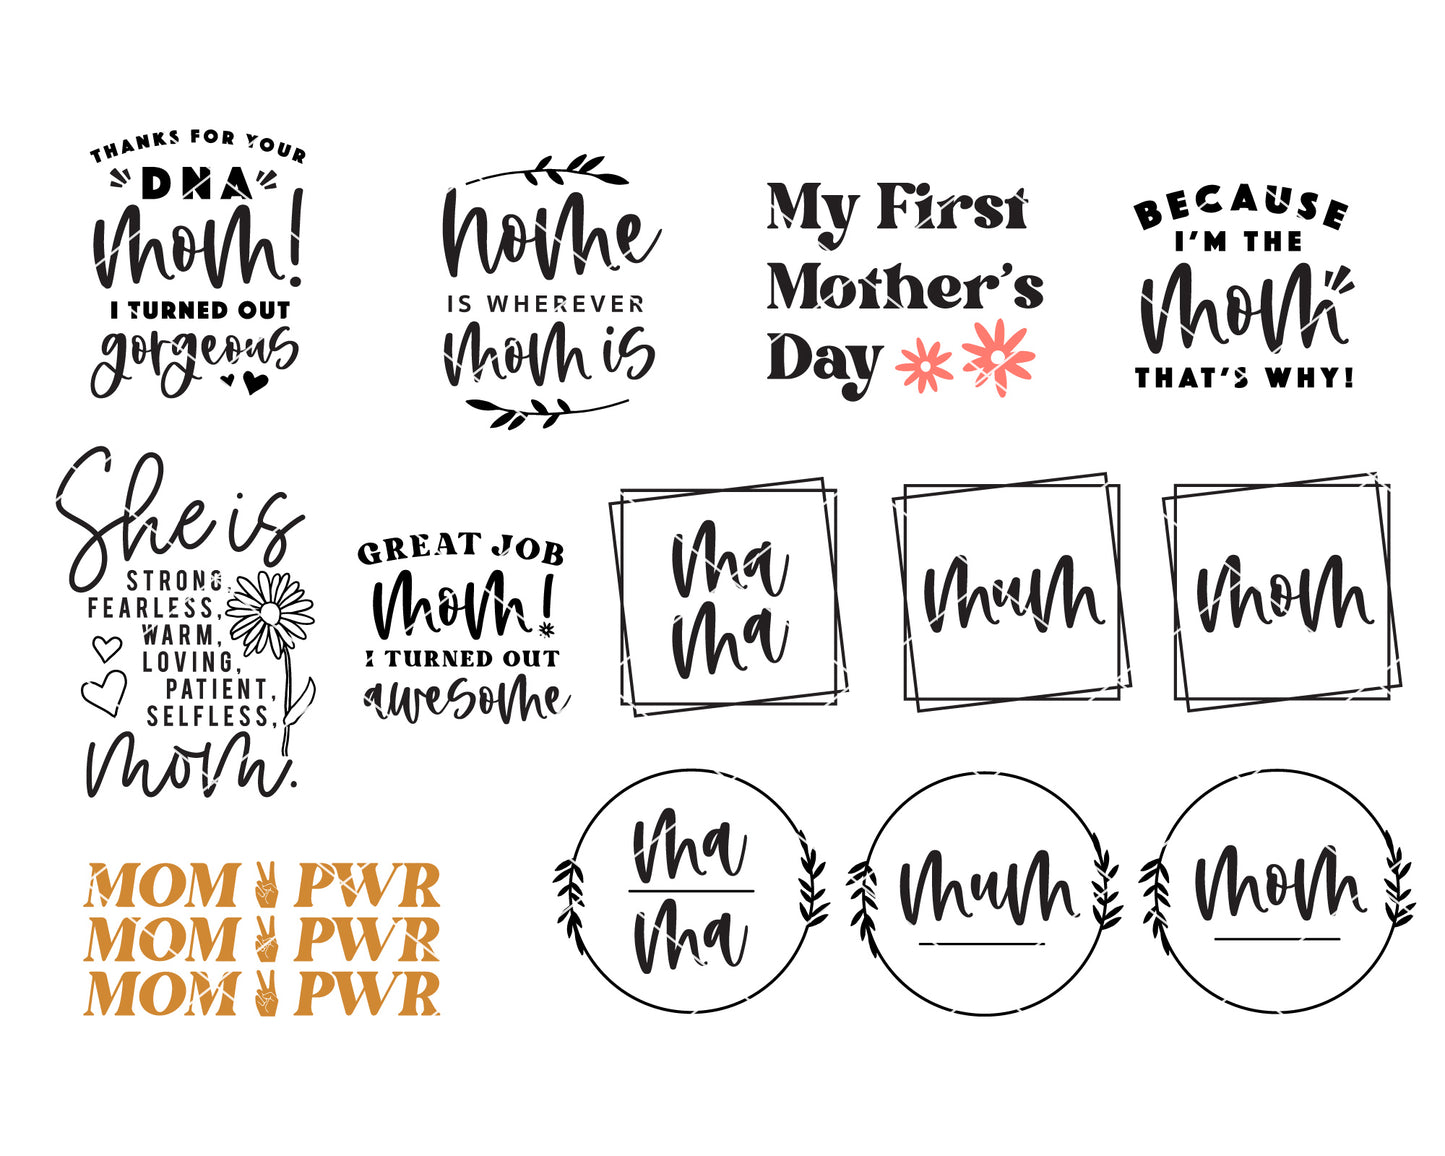 THANKS FOR YOUR
DNA
mom!
I TURNED OUT
gorgeous
home
IS WHEREVER
mom is
My First
Mother's
Day
BECAUSE
I'M THE
mom
THAT'S WHY!
She is
STRONG,
FEARLESS,
WARM,
LOVING,
PATIENT,
SELFLESS,
mom.
GREAT JOB
mom!
I TURNED OUT
awesome
ma
ma
mum
mom
MOM PWR
MOM PWR
MOM PWR
ma
ma
mum
mom